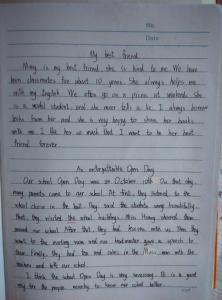 No.
Date
My best friend
Mary is my best friend, she is kind to me. We have
been classmates for about 10 years. She always helps me
with my English. We often go on a picnic at weekends. She
is a model student, and she never tells a lie. I always borrow
books from her and she is very to share her books
with me. I like her so much that I want to be her best
friend forever.
An unforgettable Open Day
Our school Open Day was on October. On that day,
many parents came to our school. At first, they listened to the
school choir in the hall. They said the students sang beautifully.
that, they visited the school buildings. Miss Huang showed them
around our school. After that, they had lessons with us. Then they
went to the meeting room and our headmaster gave a speech to
them. Finally, they had tea and cakes in the room with the
teachers and left our school.
I think the school Open Day is very necessary. It is a good
way for the people nearby to know our school better.